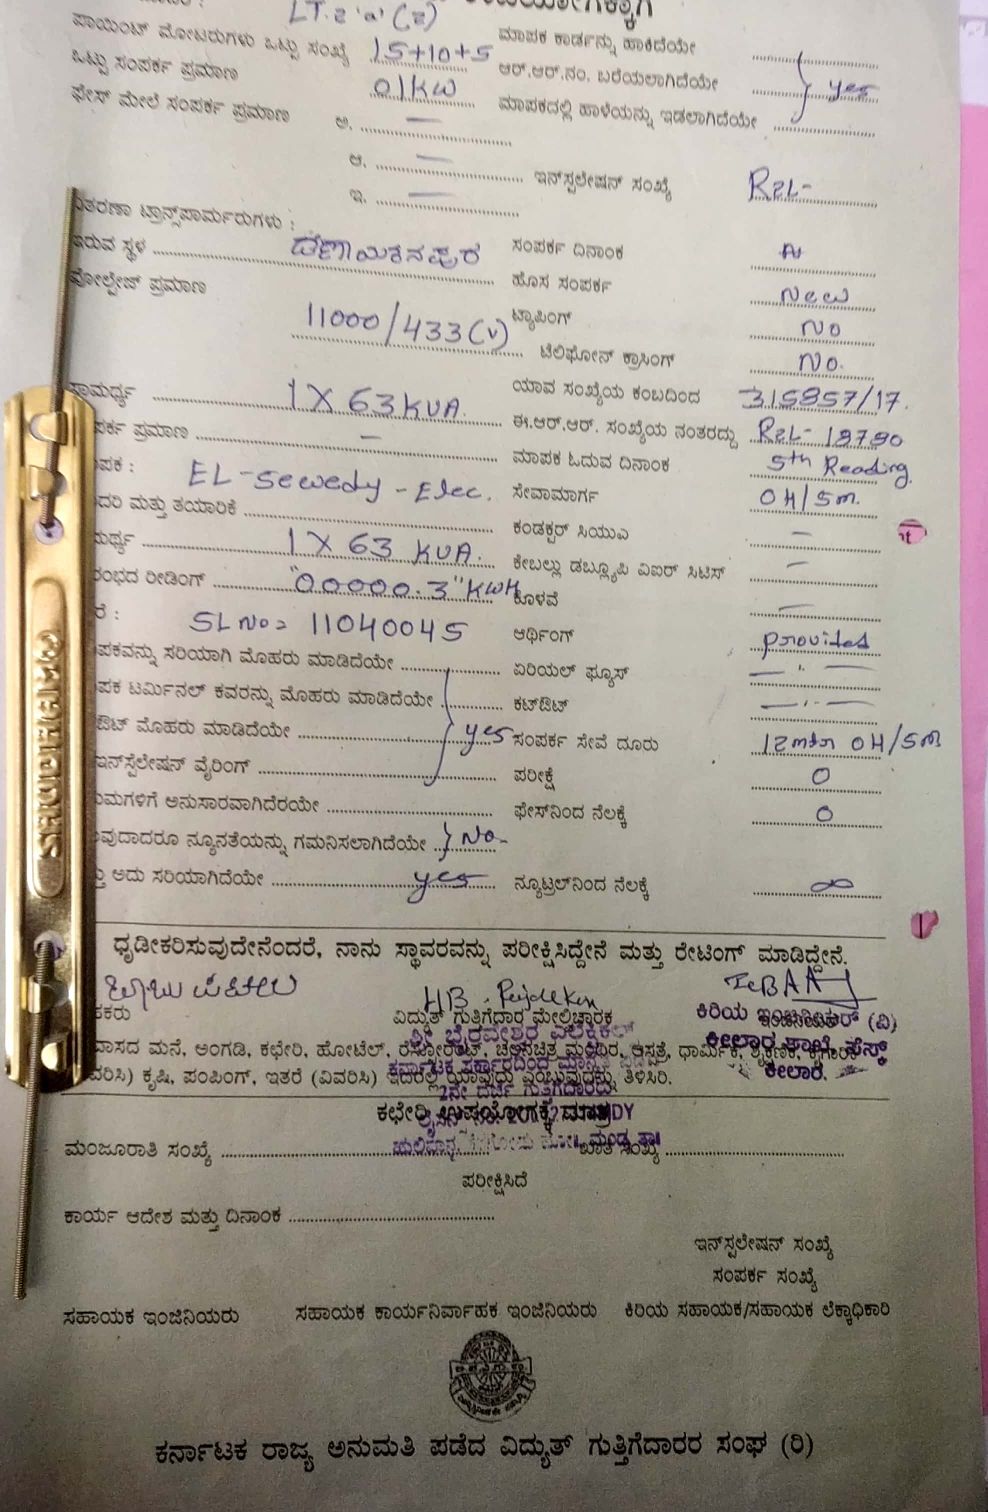 LT.2 'a' (2)
ಪಾಯಿಂಟ್ ಮೋಟರುಗಳು ಒಟ್ಟು ಸಂಖ್ಯೆ 15+10+5 ಮಾಪಕ ಕಾರ್ಡನ್ನು ಹಾಕಿದೆಯೇ
ಒಟ್ಟು ಸಂಪರ್ಕ ಪ್ರಮಾಣ 01KW ಆರ್.ಆರ್.ನಂ. ಬರೆಯಲಾಗಿದೆಯೇ yes
ಫೇಸ್ ಮೇಲೆ ಸಂಪರ್ಕ ಪ್ರಮಾಣ ಅ. — ಮಾಪಕದಲ್ಲಿ ಹಾಳೆಯನ್ನು ಇಡಲಾಗಿದೆಯೇ
ಆ. — ಇನ್‌ಸ್ಪಲೇಷನ್ ಸಂಖ್ಯೆ RzL-
ಇ. —
ವಿತರಣಾ ಟ್ರಾನ್ಸ್‌ಪಾರ್ಮರುಗಳು :
ಇರುವ ಸ್ಥಳ ಡಣಾಯಕನಪುರ ಸಂಪರ್ಕ ದಿನಾಂಕ
ವೋಲ್ಟೇಜ್ ಪ್ರಮಾಣ ಹೊಸ ಸಂಪರ್ಕ New
11000/433(V) ಟ್ಯಾಪಿಂಗ್ NO
ಟೆಲಿಫೋನ್ ಕ್ರಾಸಿಂಗ್ No.
ಸಾಮರ್ಥ್ಯ 1 X 63 KVA. ಯಾವ ಸಂಖ್ಯೆಯ ಕಂಬದಿಂದ 315857/17.
ಪರ್ಕ ಪ್ರಮಾಣ — ಈ.ಆರ್.ಆರ್. ಸಂಖ್ಯೆಯ ನಂತರದ್ದು RzL- 19790
ಪಕ : EL-Sewedy-Elec. ಮಾಪಕ ಓದುವ ದಿನಾಂಕ 5th Reading.
ದರಿ ಮತ್ತು ತಯಾರಿಕೆ ಸೇವಾಮಾರ್ಗ OH/5m.
ಮರ್ಥ್ಯ 1 X 63 KVA. ಕಂಡಕ್ಟರ್ ಸಿಯುಎ —
ರಂಭದ ರೀಡಿಂಗ್ "00000.3" KWH ಕೇಬಲ್ಲು ಡಬ್ಲ್ಯೂಪಿ ವಿಐರ್ ಸಿಟಿಸ್ —
ರೆ : ಕೊಳವೆ —
SL No= 11040045 ಆರ್ಥಿಂಗ್ provited
ಪಕವನ್ನು ಸರಿಯಾಗಿ ಮೊಹರು ಮಾಡಿದೆಯೇ ಏರಿಯಲ್ ಫ್ಯೂಸ್ —"—
ಪಕ ಟರ್ಮಿನಲ್ ಕವರನ್ನು ಮೊಹರು ಮಾಡಿದೆಯೇ ಕಟ್‌ಔಟ್ —"—
ಔಟ್ ಮೊಹರು ಮಾಡಿದೆಯೇ yes ಸಂಪರ್ಕ ಸೇವೆ ದೂರು 12mtr OH/5m
ಇನ್‌ಸ್ಪೆಲೇಷನ್ ವೈರಿಂಗ್ ಪರೀಕ್ಷೆ 0
ಯಮಗಳಿಗೆ ಅನುಸಾರವಾಗಿದೆರಯೇ ಫೇಸ್‌ನಿಂದ ನೆಲಕ್ಕೆ 0
ವುದಾದರೂ ನ್ಯೂನತೆಯನ್ನು ಗಮನಿಸಲಾಗಿದೆಯೇ No-
ತ್ತು ಅದು ಸರಿಯಾಗಿದೆಯೇ yes ನ್ಯೂಟ್ರಲ್‌ನಿಂದ ನೆಲಕ್ಕೆ ∞
ಧೃಡೀಕರಿಸುವುದೇನೆಂದರೆ, ನಾನು ಸ್ಥಾವರವನ್ನು ಪರೀಕ್ಷಿಸಿದ್ದೇನೆ ಮತ್ತು ರೇಟಿಂಗ್ ಮಾಡಿದ್ದೇನೆ.
ಹಕರು ವಿದ್ಯುತ್ ಗುತ್ತಿಗೆದಾರ ಮೇಲ್ವಿಚಾರಕ ಕಿರಿಯ ಇಂಜಿನಿಯರ್ (ವಿ)
ಶ್ರೀ ಭೈರವೇಶ್ವರ ಎಲೆಕ್ಟ್ರಿಕಲ್ ಕೀಲಾರ ಶಾಖೆ, ಸೆಸ್ಕ್
ಕೀಲಾರ.
ವಾಸದ ಮನೆ, ಅಂಗಡಿ, ಕಛೇರಿ, ಹೋಟೆಲ್, ರೆಸ್ಟೋರೆಂಟ್, ಚಲನಚಿತ್ರ ಮಂದಿರ, ಆಸ್ಪತ್ರೆ, ಧಾರ್ಮಿಕ, ಶೈಕ್ಷಣಿಕ, ಕೈಗಾರಿಕೆ
ವರಿಸಿ) ಕೃಷಿ, ಪಂಪಿಂಗ್, ಇತರೆ (ವಿವರಿಸಿ) ಇದರಲ್ಲಿ ಯಾವುದು ಎಂಬುವುದಕ್ಕು ತಿಳಿಸಿರಿ.
2ನೇ ದರ್ಜೆ ಗುತ್ತಿಗೆದಾರರು
ಕಛೇರಿ ಉಪಯೋಗಕ್ಕೆ ಮಾತ್ರ
ಮಂಜೂರಾತಿ ಸಂಖ್ಯೆ ಖಾತೆ ಸಂಖ್ಯೆ
ಪರೀಕ್ಷಿಸಿದೆ
ಕಾರ್ಯ ಆದೇಶ ಮತ್ತು ದಿನಾಂಕ
ಇನ್‌ಸ್ಪಲೇಷನ್ ಸಂಖ್ಯೆ
ಸಂಪರ್ಕ ಸಂಖ್ಯೆ
ಸಹಾಯಕ ಇಂಜಿನಿಯರು ಸಹಾಯಕ ಕಾರ್ಯನಿರ್ವಾಹಕ ಇಂಜಿನಿಯರು ಕಿರಿಯ ಸಹಾಯಕ/ಸಹಾಯಕ ಲೆಕ್ಕಾಧಿಕಾರಿ
ಕರ್ನಾಟಕ ರಾಜ್ಯ ಅನುಮತಿ ಪಡೆದ ವಿದ್ಯುತ್ ಗುತ್ತಿಗೆದಾರರ ಸಂಘ (ರಿ)